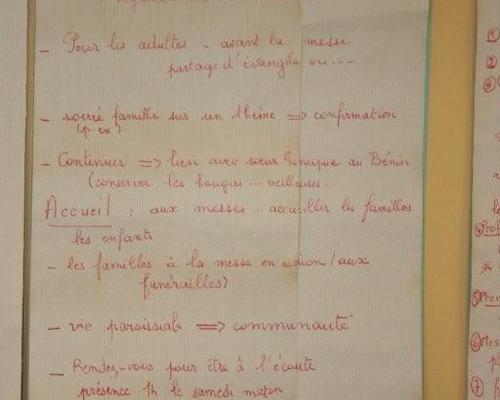 - Pour les adultes - avant la messe
partage d'évangile ou ...
- soirée famille sur un thème => confirmation
(p. ex).
- Continuer => lien avec sœur Monique au Bénin
(conserver les bougies ... veilleuses ...
Accueil : aux messes .. accueillir les familles
les enfants
- les familles à la messe en union / aux
funérailles)
- vie paroissiale => communauté
- Rendez-vous pour être à l'écoute
présence 1h le samedi matin